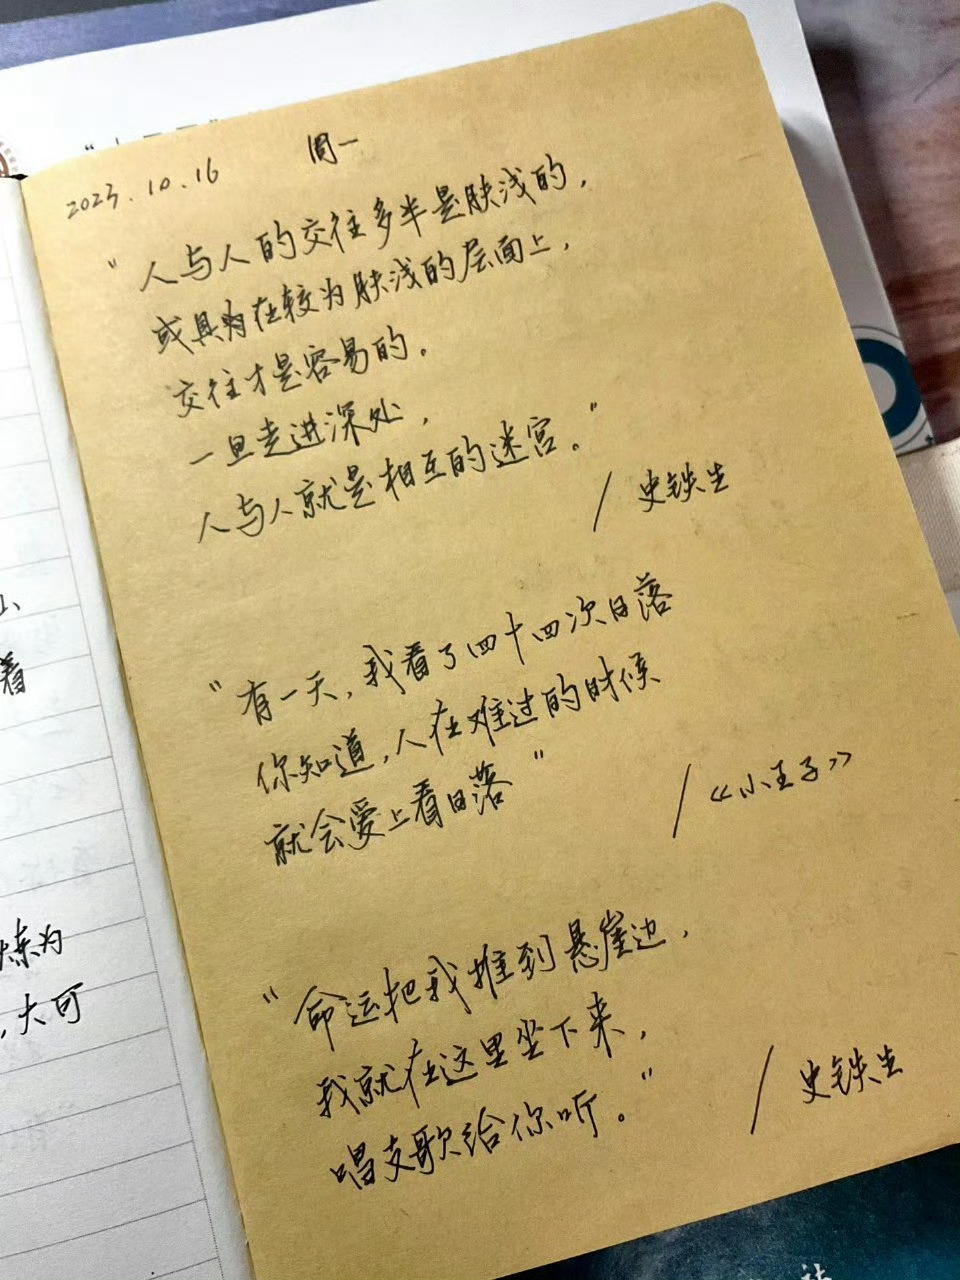 2023.10.16 周一
"人与人的交往多半是肤浅的,
或具为在较为肤浅的层面上,
交往才是容易的。
一旦走进深处,
人与人就是相互的迷宫。"
/ 史铁生
"有一天,我看了四十四次日落
你知道,人在难过的时候
就会爱上看日落"
/《小王子》
"命运把我推到悬崖边,
我就在这里坐下来,
唱支歌给你听。"
/ 史铁生
着
炼为
,大可